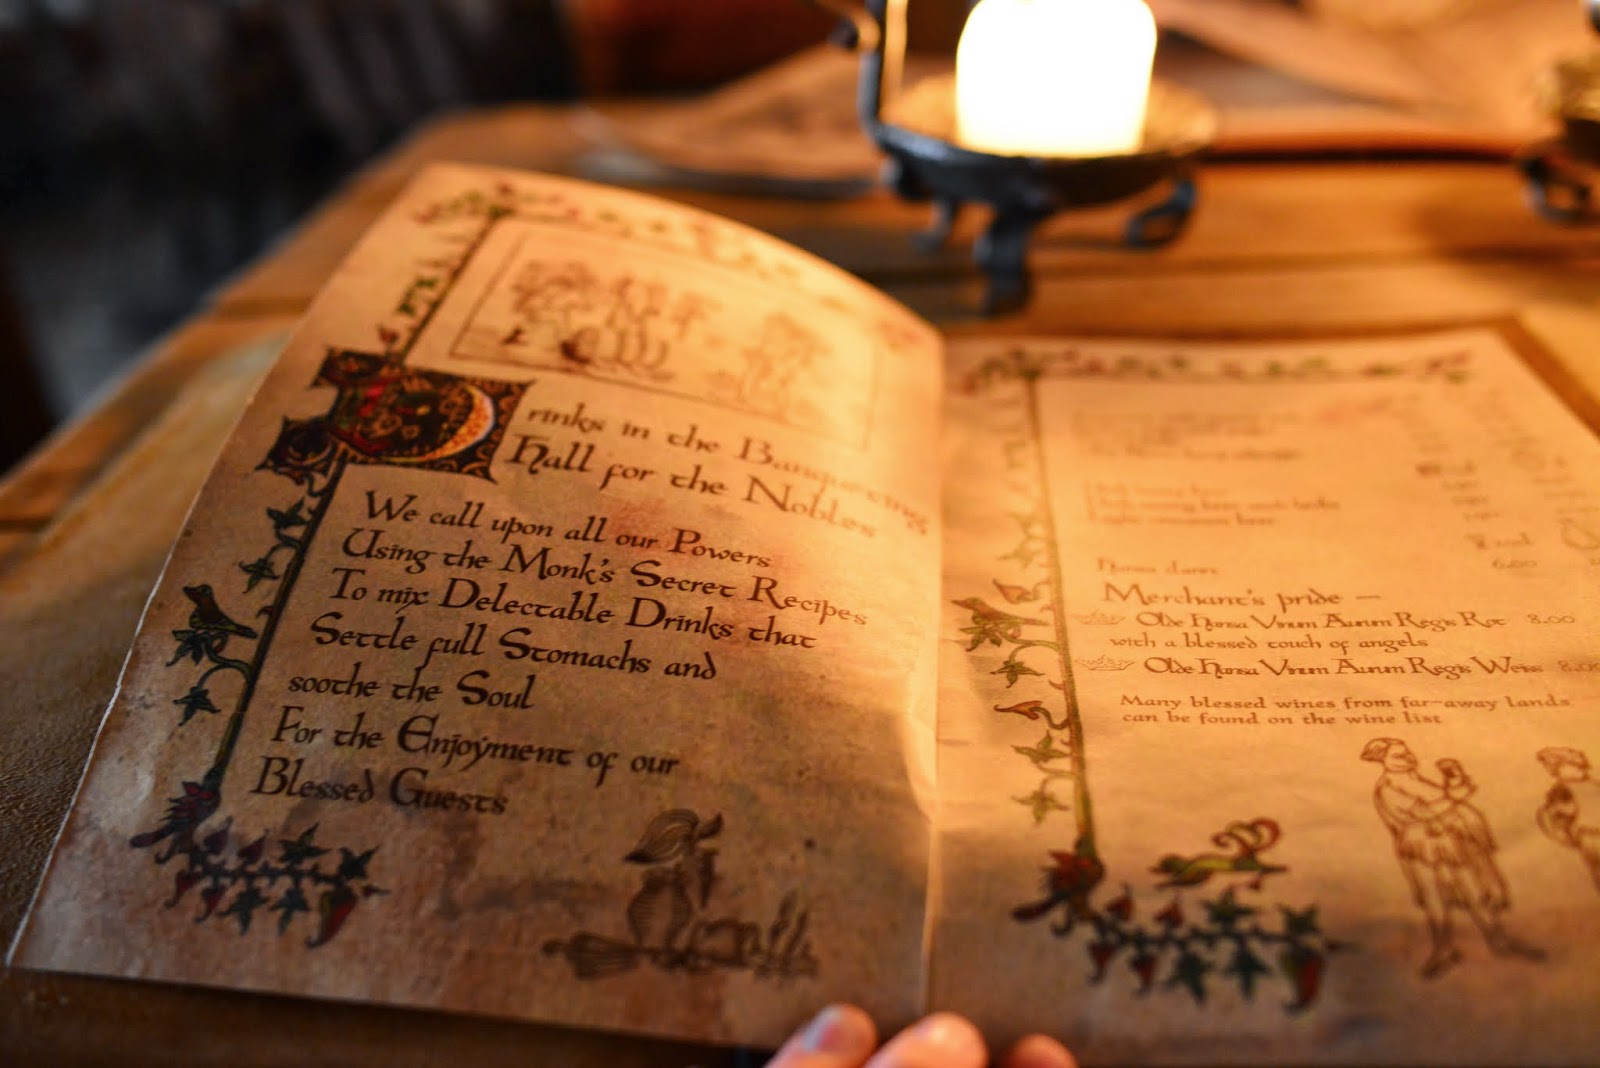 Drinks in the Banqueting
Hall for the Nobles
We call upon all our Powers
Using the Monk's Secret Recipes
To mix Delectable Drinks that
Settle full Stomachs and
soothe the Soul
For the Enjoyment of our
Blessed Guests
Hansa claret 6.00
Merchant's pride —
Olde Hansa Vinum Aurum Regis Rot 8.00
with a blessed touch of angels
Olde Hansa Vinum Aurum Regis Weiss 8.00
Many blessed wines from far-away lands
can be found on the wine list